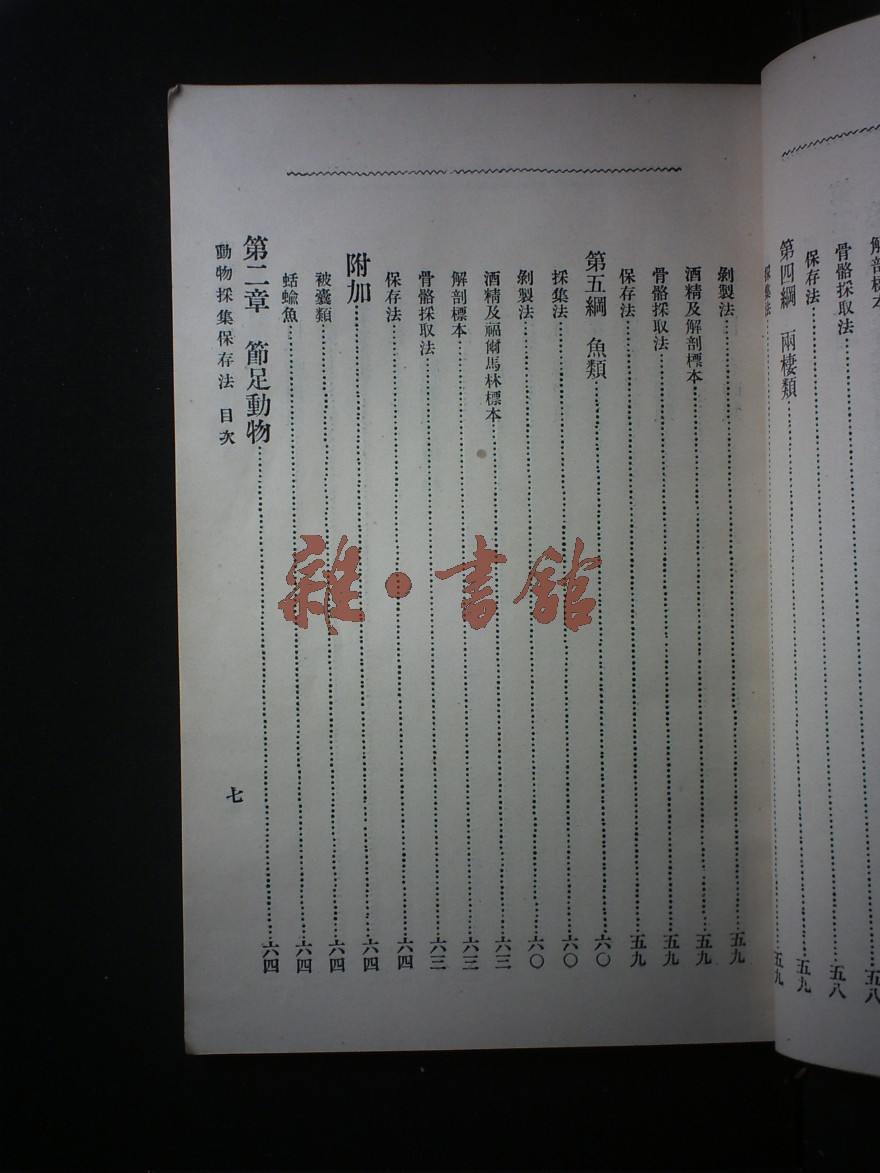 解剖標本……五八
骨骼採取法……五八
保存法……五九
第四綱　兩棲類……五九
採集法
剝製法……五九
酒精及解剖標本……五九
骨骼採取法……五九
保存法……五九
第五綱　魚類……六〇
採集法……六〇
剝製法……六〇
酒精及福爾馬林標本……六三
解剖標本……六三
骨骼採取法……六三
保存法……六四
附加……六四
被囊類……六四
蛞蝓魚……六四
第二章　節足動物……六四
動物採集保存法　目次
七
雜·書館